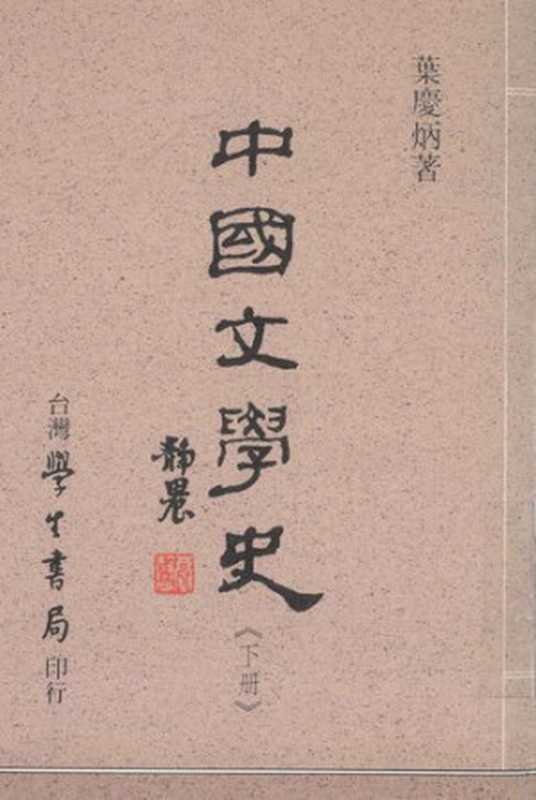 葉慶炳著
中國文學史
《下册》
靜農
台灣學生書局印行